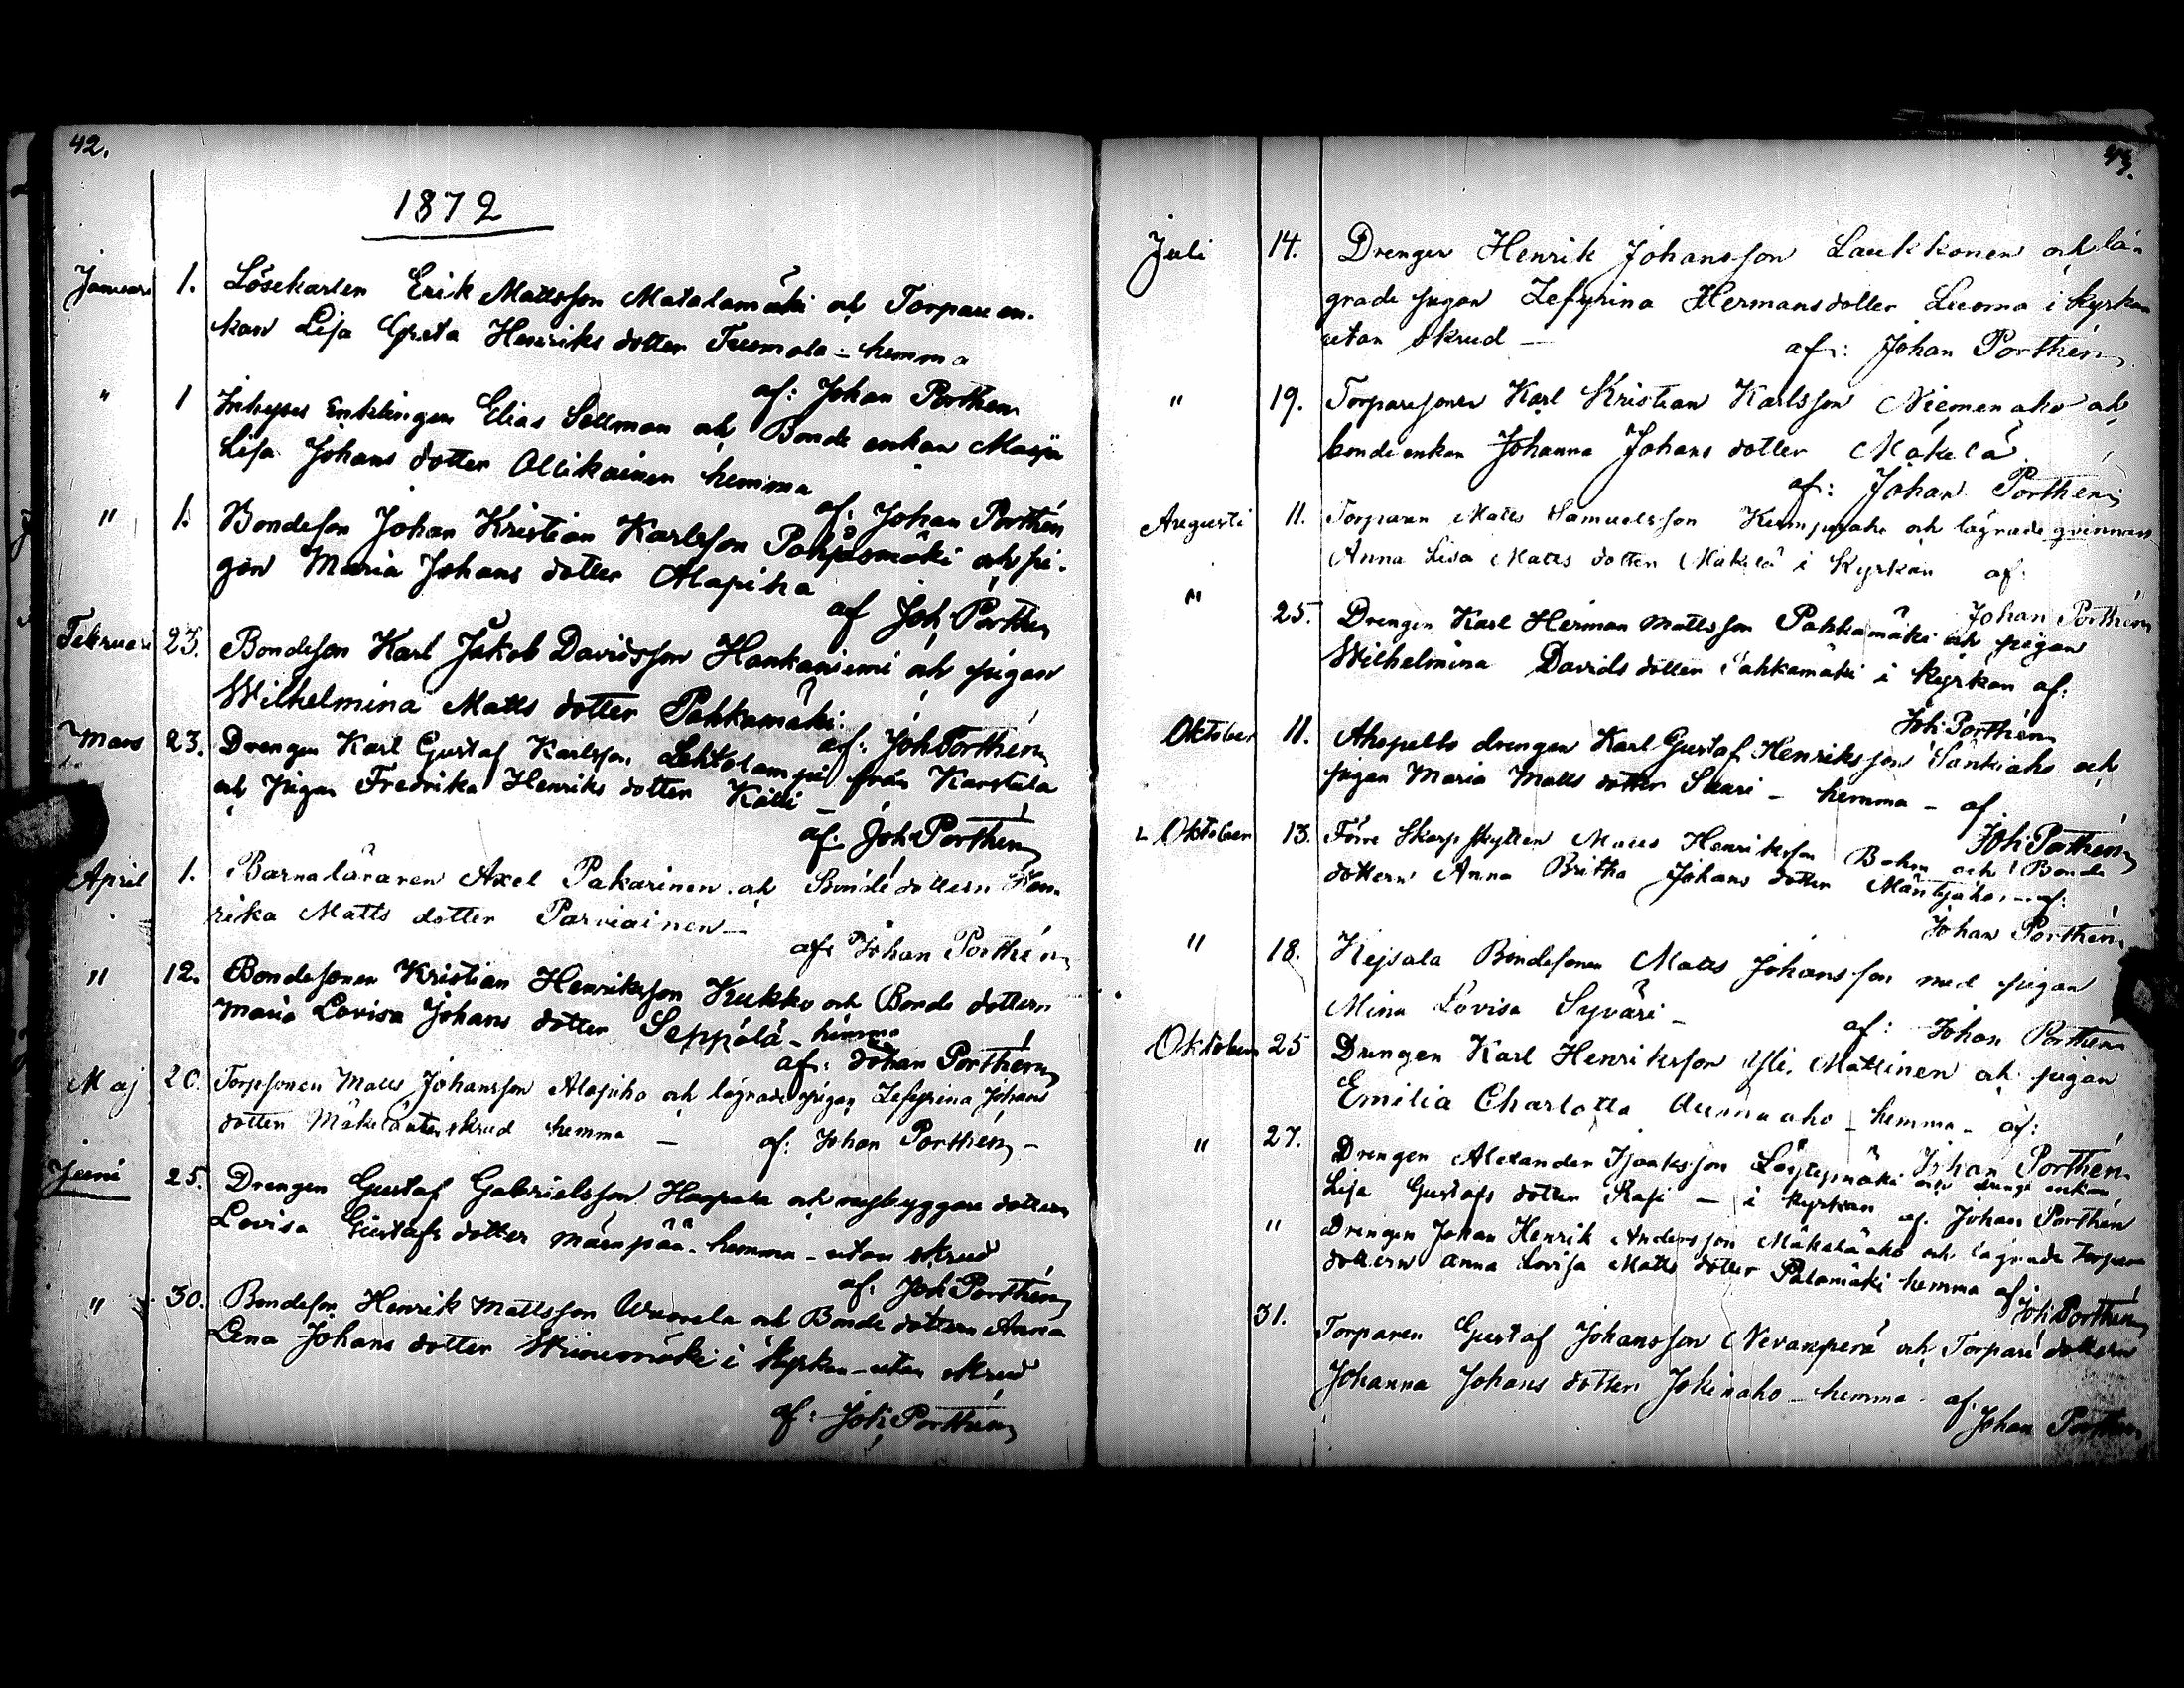 42.
1872
Januari 1. Lösekarlen Erik Mattsson Matalamäki och Torpareen-
kan Lisa Greta Henriks dotter Tuomala - hemma
af: Johan Porthén
" 1 Inhyses Enklingen Elias Sellman och Bonde enkan Maja
Lisa Johans dotter Ollikainen hemma
af: Johan Porthén
" 1. Bondeson Johan Kristian Karlsson Pohjasmäki och pi-
gan Maria Johans dotter Alapiha
af Joh Porthén
Februari 23. Bondeson Karl Jakob Davidsson Hankaniemi och pigan
Wilhelmina Matts dotter Pahkamäki
af: Joh Porthén
Mars 23. Drengen Karl Gustaf Karlsson Lehtolampi från Karstula
och Pigan Fredrika Henriks dotter Kälti -
af. Joh Porthén
April 1. Barnaläraren Axel Pakarinen och Bonde dottern Hen-
rika Matts dotter Parviainen -
af: Johan Porthén
" 12. Bondesonen Kristian Henriksson Kukko och Bonde dottern
Maria Lovisa Johans dotter Seppälä - hemma
af: Johan Porthén
Maj 20. Torpsonen Matts Johansson Alapiha och lägrade pigan Zefyrina Johans
dotter Mäkelä utan skrud hemma - af: Johan Porthén -
Juni 25. Drengen Gustaf Gabrielsson Haapala och nybyggare dottern
Lovisa Gustafs dotter Mäenpää - hemma - utan skrud
af. Joh Porthén
" 30. Bondeson Henrik Mattsson Wuorela och Bonde dottern Anna
Lena Johans dotter Wiinamäki i kyrkan - utan skrud
af: Joh. Porthén
43.
Juli 14. Drengen Henrik Johansson Laukkonen och lä-
grade pigan Zefyrina Hermansdotter Luoma i kyrkan
utan skrud - af: Johan Porthén
" 19. Torparesonen Karl Kristian Karlsson Niemenaho och
bondeenkan Johanna Johans dotter Mäkelä.
af: Johan Porthén
Augusti 11. Torparen Matts Samuelsson Kumpuaho och lägrade qvinnan
Anna Lisa Matts dotter Mäkelä i Kyrkan af:
Johan Porthén
" 25. Drengen Karl Herman Mattsson Pahkamäki och pigan
Wilhelmina Davids dotter Pahkamäki i kyrkan af:
Joh: Porthén
Oktober 11. drengen Karl Gustaf Henriksson och
pigan Maria Matts dotter Saari - hemma - af
Joh: Porthén
Oktober 13. Förre Skarpskytten Matts Henriksson Bohm och Bonde
dottern Anna Britha Johans dotter Mäntyaho - af:
Johan Porthén
" 18. Bondesonen Matts Johansson med pigan
Mina Lovisa Syväri -
af: Johan Porthén
Oktober 25 Drengen Karl Henriksson Yli Mattinen och pigan
Emilia Charlotta Aunuaho - hemma - af:
Johan Porthén
" 27. Drengen Alexander Isaksson Löytynmäki och drenge enkan
Lisa Gustafs dotter Rasi - i kyrkan af. Johan Porthén
" Drengen Johan Henrik Andersson Mäkeläaho och lägrade Torpare
dottern Anna Lovisa Matts dotter Palomäki hemma af
Joh Porthén
31. Torparen Gustaf Johansson Nevanperä och Torpare dottern
Johanna Johans dotter Jokinaho - hemma - af.
Johan Porthén